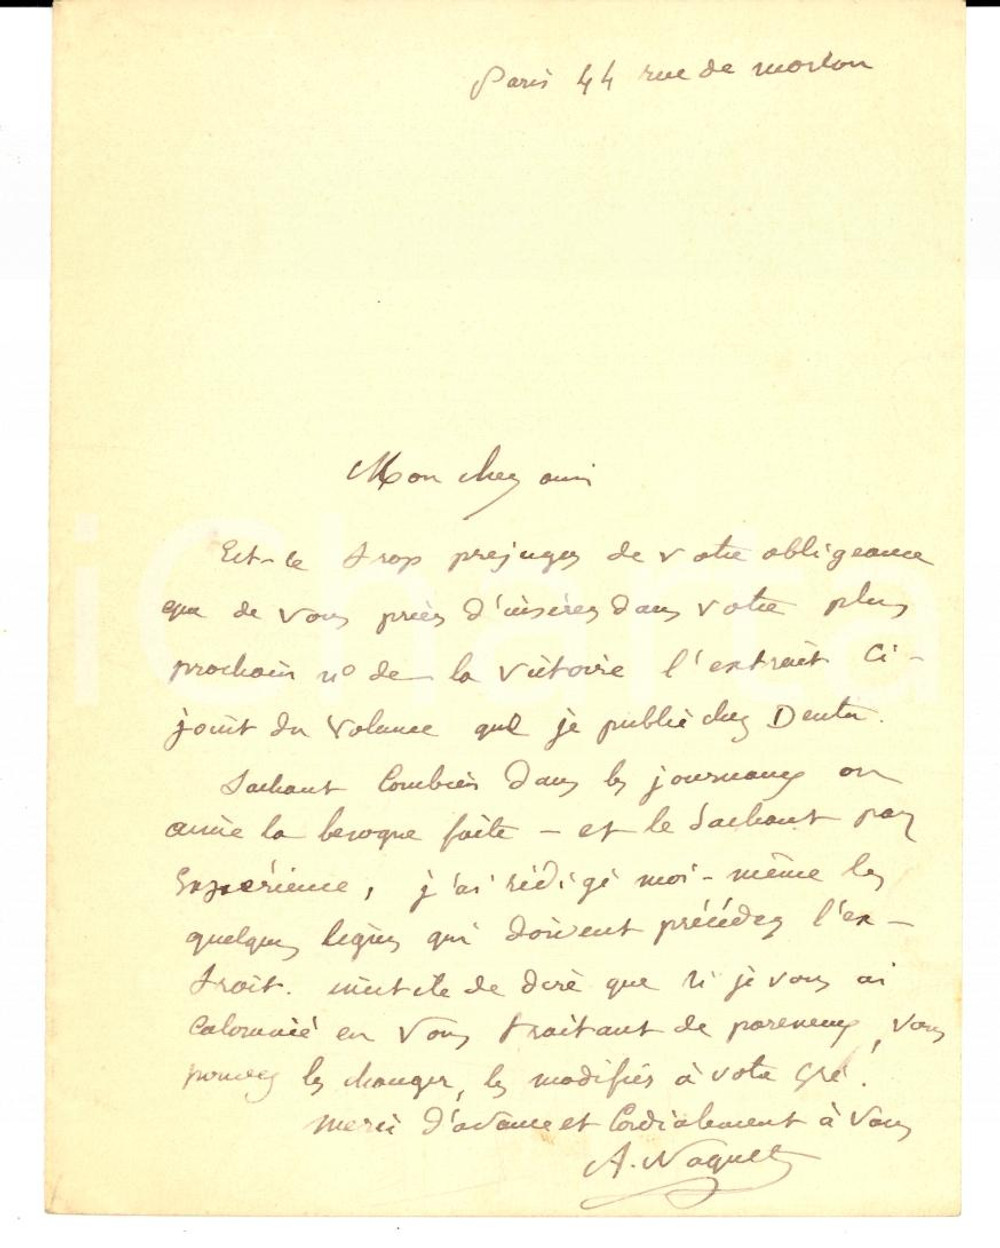 Paris 44 rue de moscou
Mon cher ami
Est-ce trop préjuger de votre obligeance
que de vous prier d'insérer dans votre plus
prochain nº de la Victoire l'extrait ci-
joint du volume que je publie chez Dentu.
Sachant combien dans les journaux on
aime la besogne faite - et le sachant par
expérience, j'ai rédigé moi-même les
quelques lignes qui doivent précéder l'ex-
trait. inutile de dire que si je vous ai
calomnié en vous traitant de paresseux, vous
pouvez les changer, les modifier à votre gré.
merci d'avance et cordialement à vous
A. Naquet
iCharta